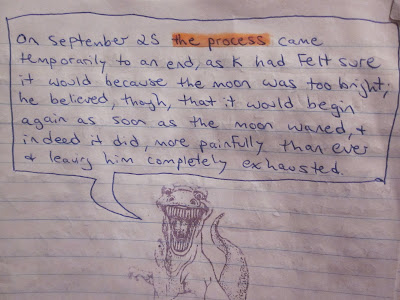 On September 25 the process came
temporarily to an end, as K had felt sure
it would because the moon was too bright;
he believed, though, that it would begin
again as soon as the moon waned, &
indeed it did, more painfully than ever
& leaving him completely exhausted.